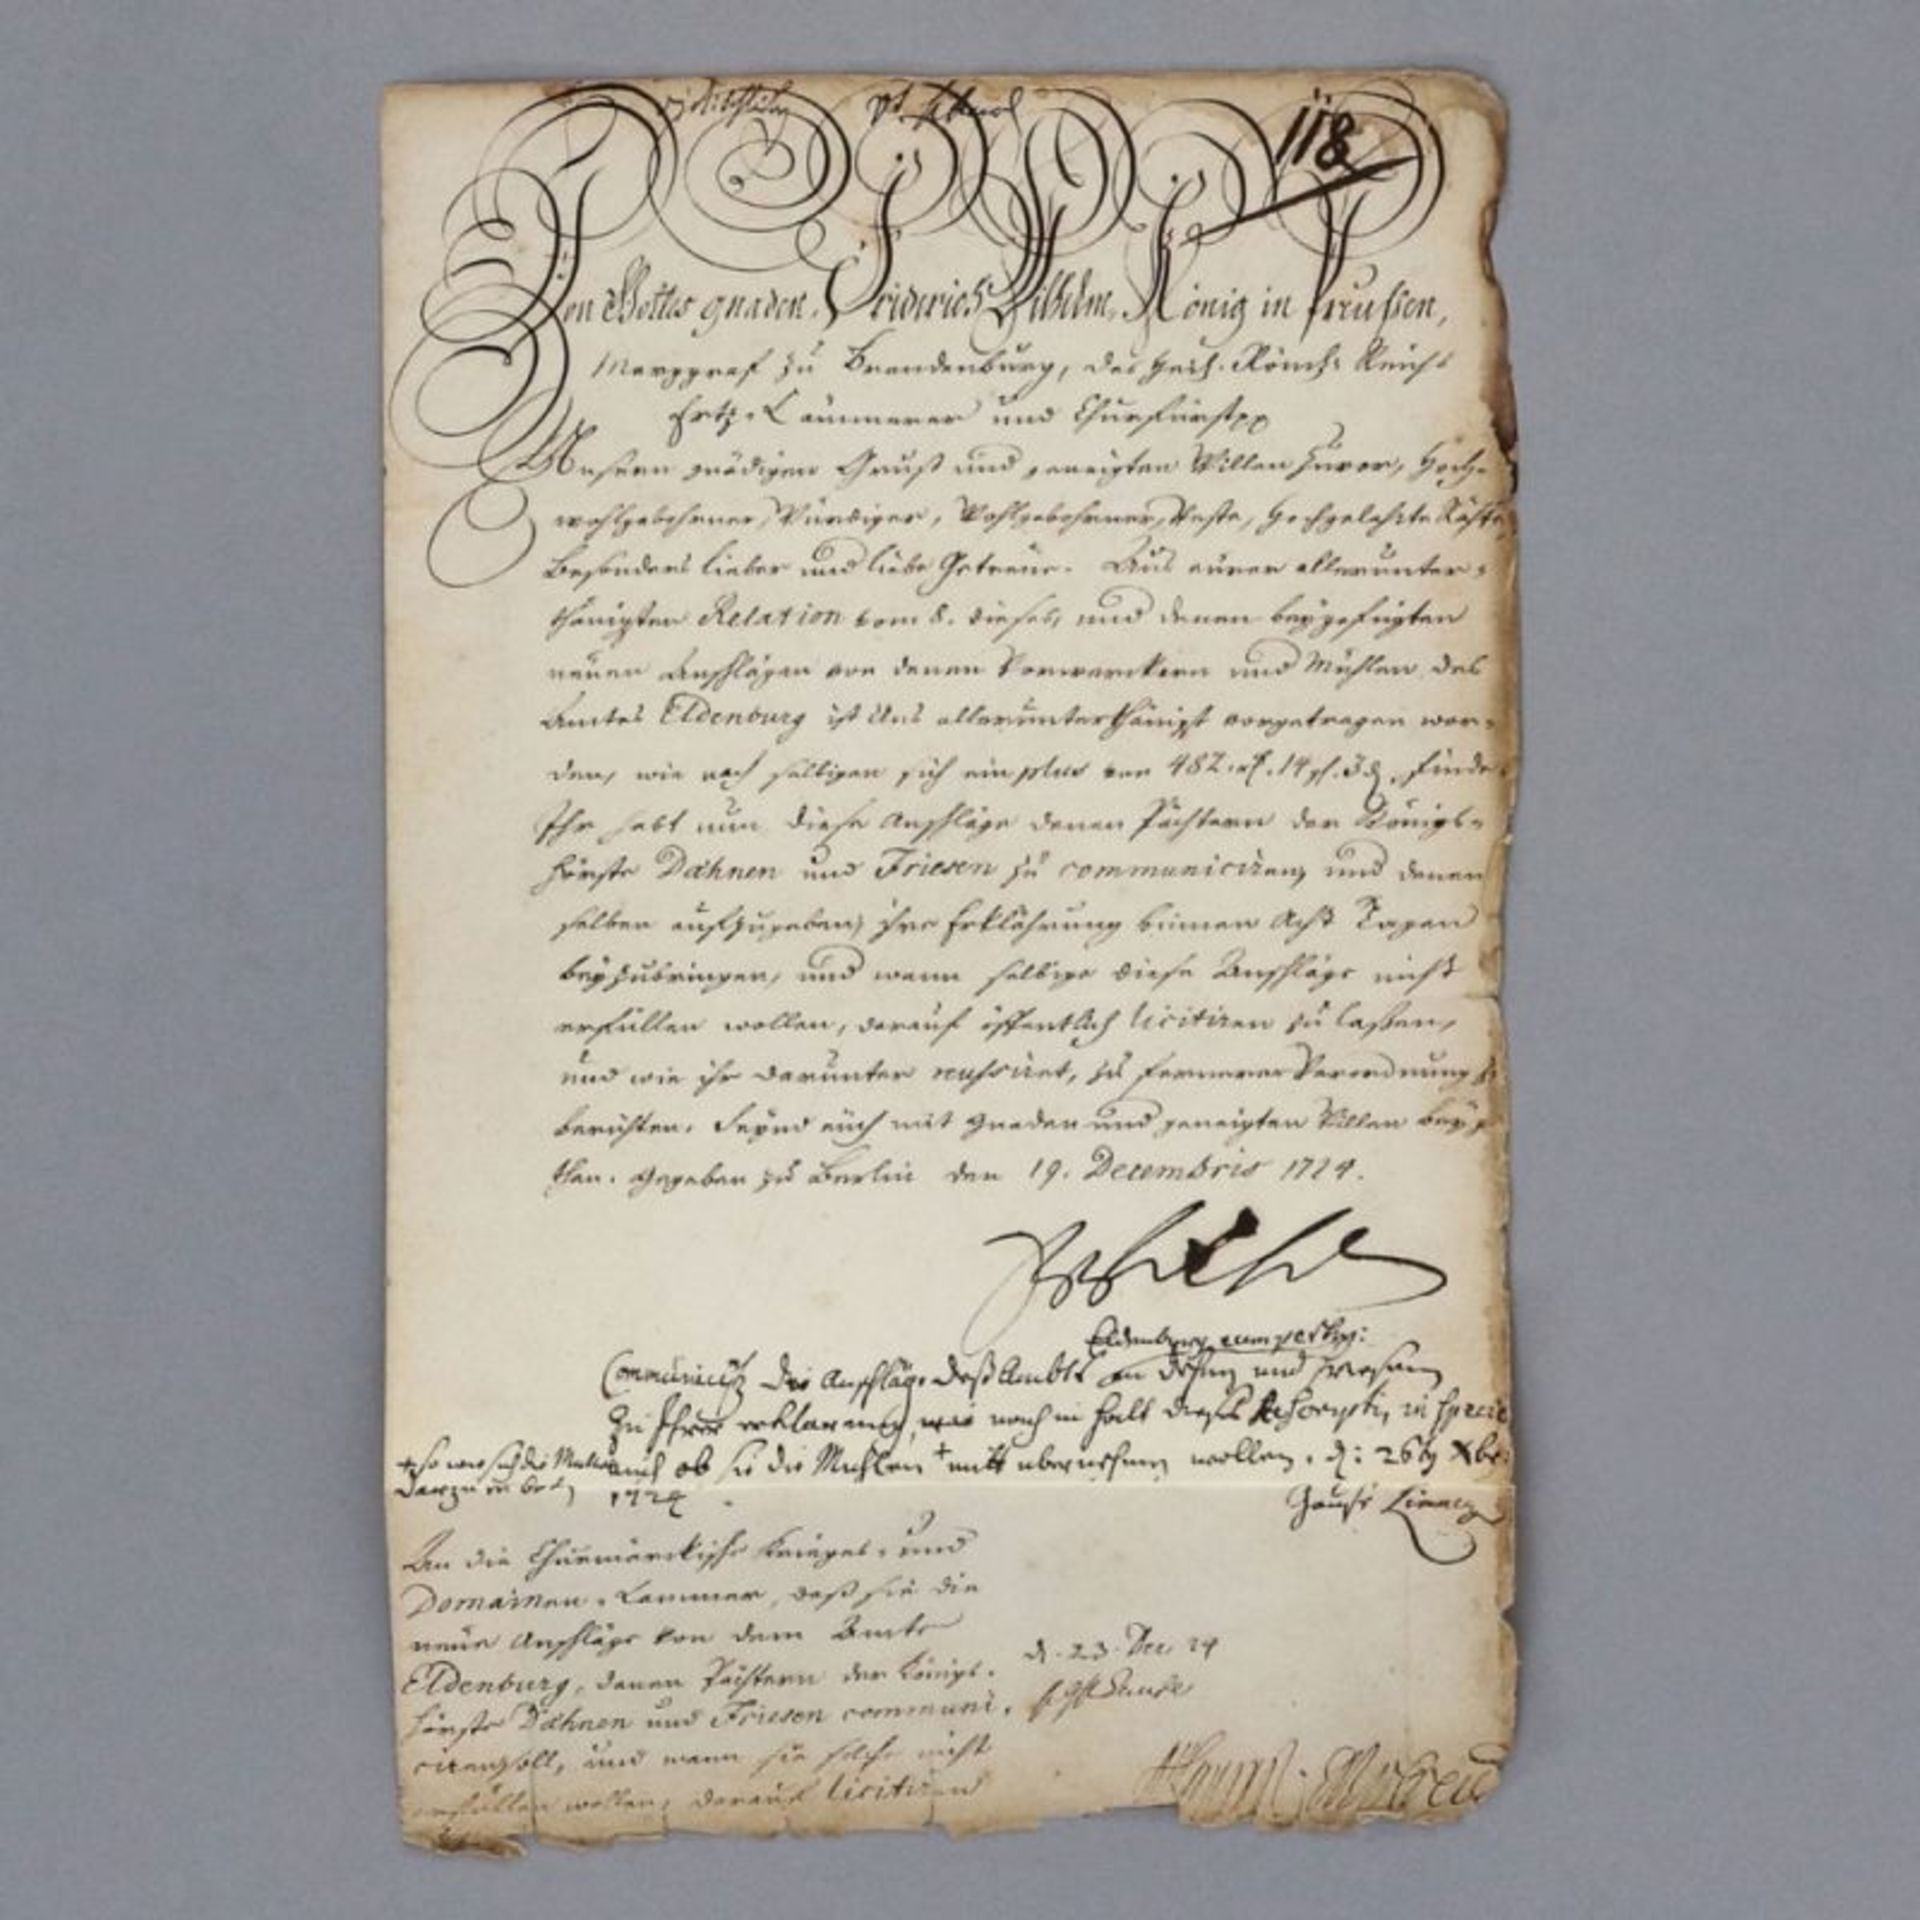 118
Von Gottes gnaden, Friderich Wilhelm, König in Preussen,
Marggraf zu Brandenburg, des Heyl. Römisch. Reichs
Ertz-Cämmerer und Churfürst pp
Unsern gnädigen Gruß und geneigten Willen zuvor, Hoch-
wohlgebohrner, Würdiger, Wohlgebohrner, Veste, Hochgelahrte Räthe,
Besonders lieber und liebe Getreüe. Aus eürer allerunter-
thänigsten Relation vom 8. dieses, und denen beygefügten
neüen Anschlägen von denen Vorwerckern und Mühlen des
Amtes Eldenburg ist Uns allerunterthänigst vorgetragen wor-
den, wie nach selbigen sich ein plus von 482 rt. 14 gl. 3 d. finde.
Ihr habt nun diese Anschläge denen Pächtern der Königs-
Horste Dæhnen und Friesen zu communiciren, und denen
selben aufzugeben, ihre Erklährung binnen Acht Tagen
beyzubringen, und wenn selbige diese Anschläge nicht
erfüllen wollen, darauf öffentlich licitiren zu laßen,
und wie ihr darunter reussiret, zu fernerer Verordnung zu
berichten. Seynd eüch mit gnaden und geneigten Willen beyge-
than. Gegeben zu Berlin den 19. Decembris 1724.
Eldenburg cum
Communicetur die Anschläge deß Ambts an Dehn und Friesen
zu Ihrer erklarung, nach in halt dieses in specie
+ so wie sich die darzu
auch ob sie die Muhlen + mitt ubernehmen wollen. d: 26 Xbr:
1724
An die Churmärckische Krieges- und
Domainen-Cammer, daß sie die
neüe Anschläge von dem Amte
Eldenburg, denen Pächtern der Königs-
Horste Dæhnen und Friesen communi-
ciren soll, und wenn sie solche nicht
erfüllen wollen, darauf licitiren
d. 23. Dec. 24